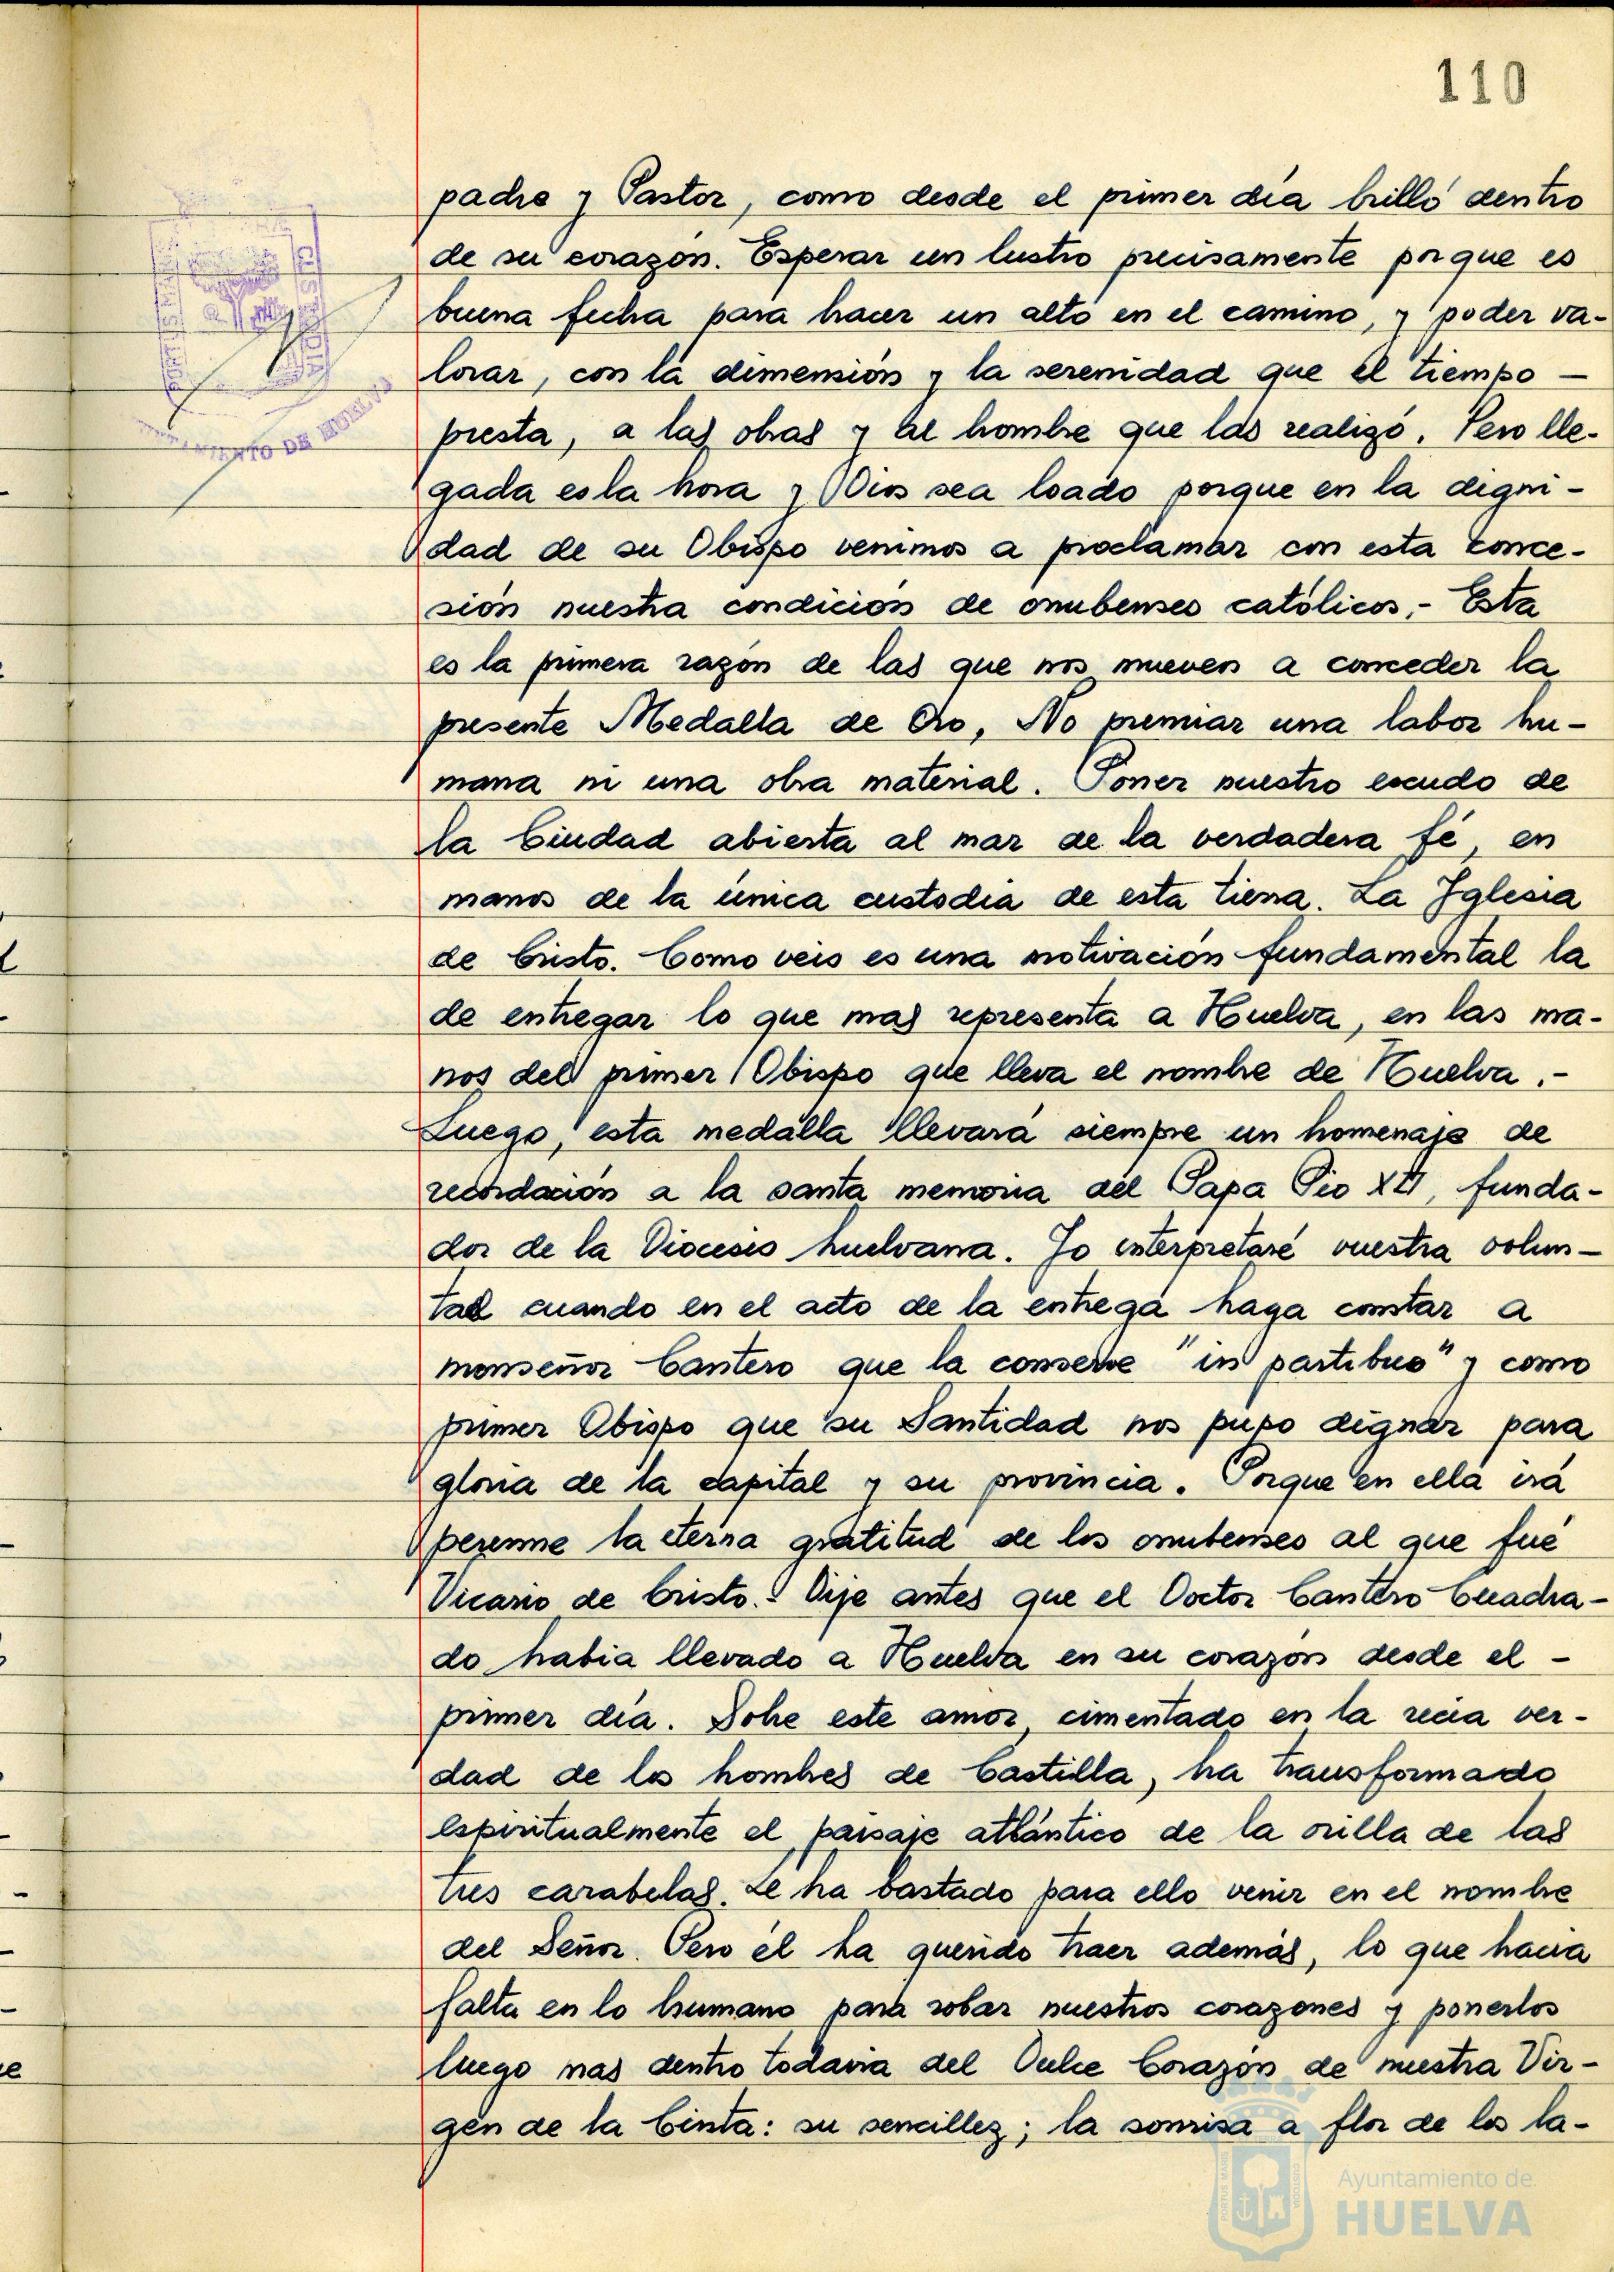 110
padre y Pastor, como desde el primer día brilló dentro
de su corazón. Esperar un lustro precisamente porque es
buena fecha para hacer un alto en el camino, y poder va-
lorar, con la dimensión y la serenidad que el tiempo -
presta, a las obras y al hombre que las realizó. Pero lle-
gada es la hora y Dios sea loado porque en la digni-
dad de su Obispo venimos a proclamar con esta conce-
sión nuestra condición de onubenses católicos.- Esta
es la primera razón de las que nos mueven a conceder la
presente Medalla de Oro, No premiar una labor hu-
mana ni una obra material. Poner nuestro escudo de
la Ciudad abierta al mar de la verdadera fé, en
manos de la única custodia de esta tierra. La Iglesia
de Cristo. Como veis es una motivación fundamental la
de entregar lo que mas representa a Huelva, en las ma-
nos del primer Obispo que lleva el nombre de Huelva.-
Luego, esta medalla llevará siempre un homenaje de
recordación a la santa memoria del Papa Pio XII, funda-
dor de la Diocesis huelvana. Yo interpretaré vuestra volun-
tad cuando en el acto de la entrega haga constar a
monseñor Cantero que la conserve "in partibus" y como
primer Obispo que su Santidad nos pupo dignar para
gloria de la capital y su provincia. Porque en ella irá
perenne la eterna gratitud de los onubenses al que fué
Vicario de Cristo.- Dije antes que el Doctor Cantero Cuadra-
do habia llevado a Huelva en su corazón desde el -
primer día. Sobre este amor, cimentado en la recia ver-
dad de los hombres de Castilla, ha transformado
espiritualmente el paisaje atlántico de la orilla de las
tres carabelas. Le ha bastado para ello venir en el nombre
del Señor. Pero él ha querido traer además, lo que hacia
falta en lo humano para robar nuestros corazones y ponerlos
luego mas dentro todavia del Dulce Corazón de nuestra Vir-
gen de la Cinta: su sencillez; la sonrisa a flor de los la-
PORTUS MARIS
CUSTODIA
AYUNTAMIENTO DE HUELVA
Ayuntamiento de
HUELVA